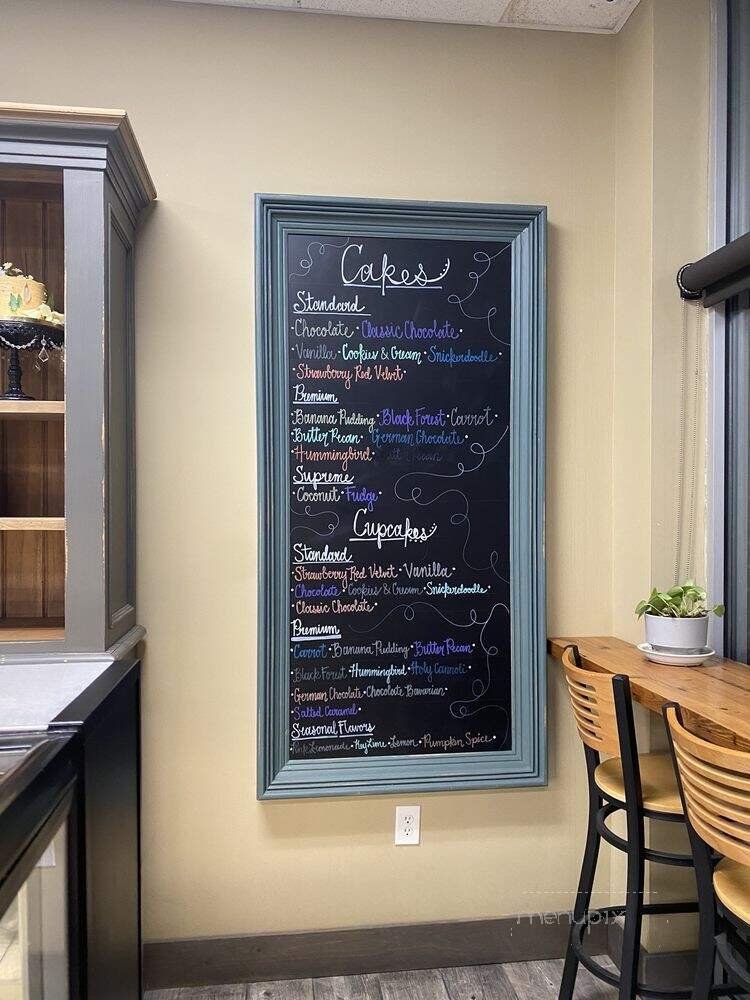 Cakes
Standard
·Chocolate·Classic Chocolate·
·Vanilla·Cookies & Cream·Snickerdoodle·
·Strawberry Red Velvet·
Premium
·Banana Pudding·Black Forest·Carrot·
·Butter Pecan·German Chocolate·
·Hummingbird·
Supreme
·Coconut·Fudge·
Cupcakes
Standard
·Strawberry Red Velvet·Vanilla·
·Chocolate·Cookies & Cream·Snickerdoodle·
·Classic Chocolate·
Premium
·Carrot·Banana Pudding·Butter Pecan·
·Black Forest·Hummingbird·Holy Cannoli·
·German Chocolate·Chocolate Bavarian·
·Salted Caramel·
Seasonal Flavors
·Pink Lemonade·Key Lime·Lemon·Pumpkin Spice·
menupix